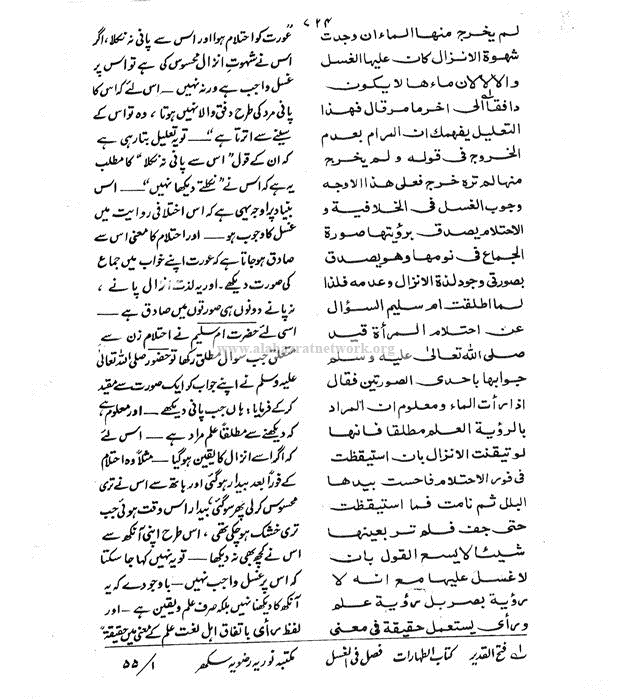 ۷۲۴
لم يخرج منها الماء ان وجدت
شهوة الانزال كان عليها الغسل
والا لا لان ماءها لا يكون
دافقا الى اخر ما مر قال فهذا
التعليل يفهمك ان المراد بعدم
الخروج فى قوله ولم يخرج
منها لم تره خرج فعلى هذا الاوجه
وجوب الغسل فى الخلافية و
الاحتلام يصدق برؤيتها صورة
الجماع فى نومها وهو يصدق
بصورتى وجود لذة الانزال وعدمه فلذا
لما اطلقت ام سليم السؤال
عن احتلام المرأة قيد
صلى الله تعالىٰ عليه وسلم
جوابها باحدى الصورتين فقال
اذا رأت الماء ومعلوم ان المراد
بالرؤية العلم مطلقا فانها
لو تيقنت الانزال بان استيقظت
فى فور الاحتلام فاحست بيدها
البلل ثم نامت فما استيقظت
حتى جف فلم تر بعينها
شيئا لا يسع القول بان
لا غسل عليها مع انه لا
رؤية بصر بل رؤية علم
و رأى يستعمل حقيقة فى معنى
عورت کو احتلام ہوا اور اس سے پانی نہ نکلا، اگر
اس نے شہوتِ انزال محسوس کی ہے تو اس پر
غسل واجب ہے ورنہ نہیں — اس لئے کہ اس کا
پانی مرد کی طرح دفق والا نہیں ہوتا، وہ تو اس کے
سینے سے اترتا ہے“— تو یہ تعلیل بتا رہی ہے
کہ ان کے قول ”اس سے پانی نہ نکلا“ کا مطلب
یہ ہے کہ اس نے ”نکلتے دیکھا نہیں“— اس
بنیاد پر اوجہ یہی ہے کہ اس اختلافی روایت میں
غسل کا وجوب ہو — اور احتلام کا معنی اس سے
صادق ہو جاتا ہے کہ عورت اپنے خواب میں جماع
کی صورت دیکھے۔ اور یہ لذتِ انزال پانے،
نہ پانے دونوں ہی صورتوں میں صادق ہے —
اسی لئے حضرت ام سلیم نے احتلام زن سے
متعلق جب سوال مطلق رکھا تو حضور صلی اللہ تعالیٰ
علیہ وسلم نے اپنے جواب کو ایک صورت سے مقید
کرکے فرمایا: ہاں جب پانی دیکھے — اور معلوم ہے
کہ دیکھنے سے مطلقاً علم مراد ہے — اس لئے
کہ اگر اسے انزال کا یقین ہوگیا — مثلاً وہ احتلام
کے فوراً بعد بیدار ہو گئی اور ہاتھ سے اس نے تری
محسوس کرلی پھر سو گئی بیدار اس وقت ہوئی جب
تری خشک ہوچکی تھی، اس طرح اپنی آنکھ سے
اس نے کچھ بھی نہ دیکھا — تو یہ نہیں کہا جا سکتا
کہ اس پر غسل واجب نہیں — باوجودے کہ یہ
آنکھ کا دیکھنا نہیں بلکہ صرف علم و یقین ہے — اور
لفظ رأی باتفاق اہل لغت علم کے معنی میں حقیقۃً
www.alahazratnetwork.org
لے فتح القدیر کتاب الطہارات فصل فی الغسل مکتبہ نوریہ رضویہ سکھر ۱/۵۵